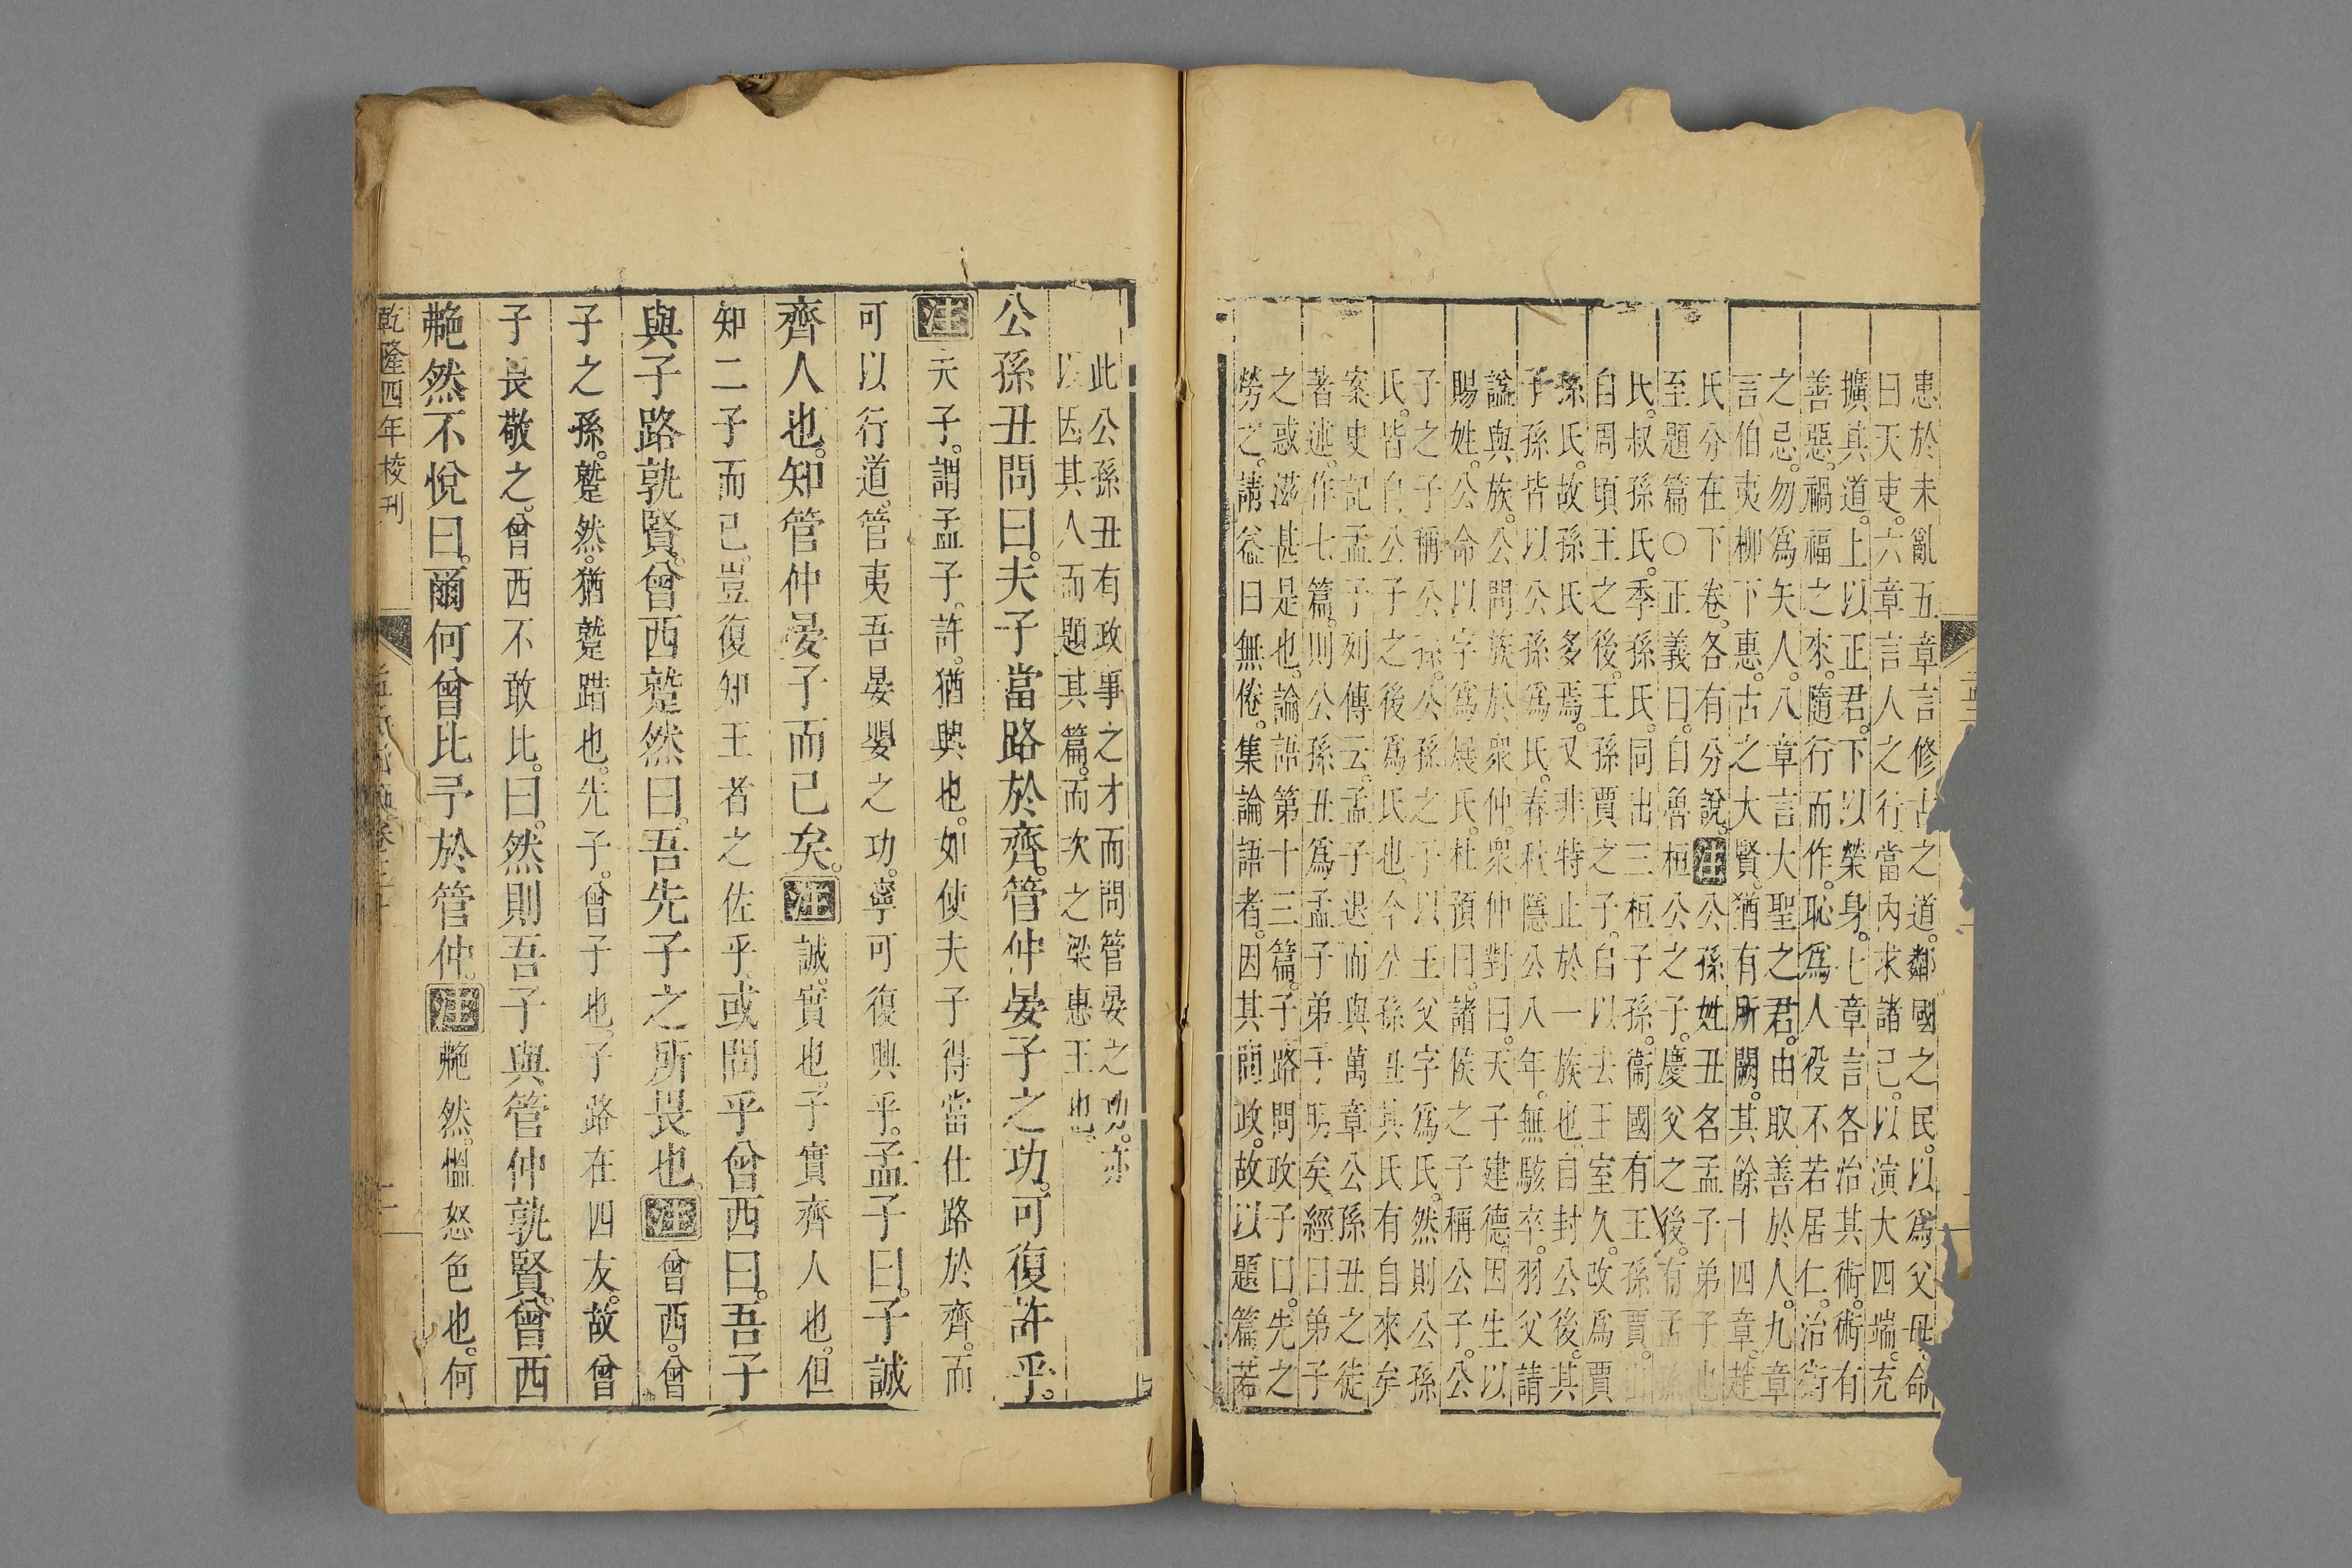 患於未亂五章言修古之道。鄰國之民。以爲父母。命
曰天吏。六章言人之行當內求諸己。以演大四端。充
擴其道。上以正君。下以榮身。七章言各治其術。術有
善惡。禍福之來。隨行而作。恥爲人役。不若居仁。治術
之忌。勿爲矢人。八章言大聖之君。由取善於人。九章
言伯夷柳下惠。古之大賢。猶有所闕。其餘十四章。趙
氏分在下卷。各有分說。注公孫姓丑名孟子弟子也
至題篇○正義曰。自魯桓公之子。慶父之後。有孟孫
氏。叔孫氏。季孫氏。同出三桓子孫。衞國有王孫賈。出
自周頃王之後。王孫賈之子。自以去王室久。改爲賈
孫氏。故孫氏多焉。又非特止於一族也。自封公後。其
子孫皆以公孫爲氏。春秋隱公八年。無駭卒。羽父請
諡與族。公問族於衆仲。衆仲對曰。天子建德。因生以
賜姓。公命以字爲展氏。杜預曰。諸侯之子稱公子。公
子之子稱公孫。公孫之子以王父字爲氏。然則公孫
氏。皆自公子之後爲氏也。今公孫丑其氏有自來矣
案史記孟子列傳云。孟子退而與萬章公孫丑之徒
著述。作七篇。則公孫丑爲孟子弟子明矣。經曰弟子
之惑滋甚是也。論語第十三篇。子路問政子曰。先之
勞之。請益曰無倦。集論語者。因其問政。故以題篇。若
此公孫丑有政事之才而問管晏之功。亦
以因其人而題其篇。而次之梁惠王也
公孫丑問曰。夫子當路於齊。管仲晏子之功。可復許乎。
注夫子。謂孟子。許。猶興也。如使夫子得當仕路於齊。而
可以行道。管夷吾晏嬰之功。寧可復興乎。孟子曰。子誠
齊人也。知管仲晏子而已矣。注誠。實也。子實齊人也。但
知二子而已。豈復知王者之佐乎。或問乎曾西曰。吾子
與子路孰賢。曾西蹵然曰。吾先子之所畏也。注曾西。曾
子之孫。蹵然。猶蹵踖也。先子。曾子也。子路在四友。故曾
子畏敬之。曾西不敢比。曰。然則吾子與管仲孰賢。曾西
艴然不悅曰。爾何曾比予於管仲。注艴然。慍怒色也。何
乾隆四年校刊